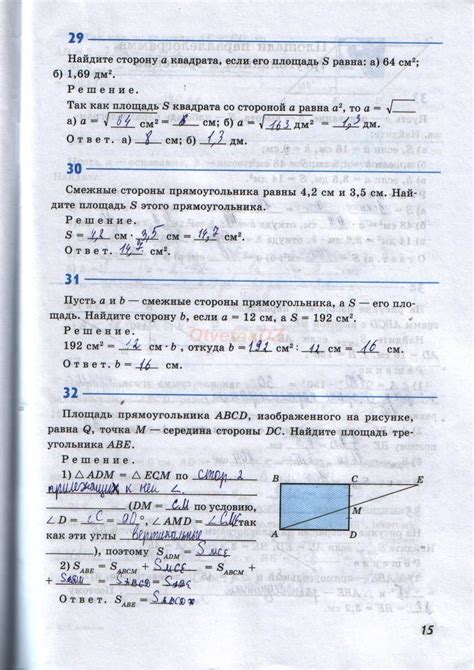 29
Найдите сторону a квадрата, если его площадь S равна: а) 64 см²;
б) 1,69 дм².
Решение.
Так как площадь S квадрата со стороной a равна a², то a = √
а) a = √64 см² = 8 см; б) a = √163 дм² = 1,3 дм.
Ответ. а) 8 см; б) 1,3 дм.
30
Смежные стороны прямоугольника равны 4,2 см и 3,5 см. Най-
дите площадь S этого прямоугольника.
Решение.
S = 4,2 см · 3,5 см = 14,7 см².
Ответ. 14,7 см².
31
Пусть a и b — смежные стороны прямоугольника, а S — его пло-
щадь. Найдите сторону b, если a = 12 см, а S = 192 см².
Решение.
192 см² = 12 см · b, откуда b = 192 см² : см = 16 см.
Ответ. b = 16 см.
32
Площадь прямоугольника ABCD, изображенного на рисунке,
равна Q, точка M — середина стороны DC. Найдите площадь тре-
угольника ABE.
Решение.
1) △ ADM = △ ECM по стор 2
прилежащих к ней ∠.
(DM = CM по условию,
∠ D = ∠C = 90°, ∠ AMD = ∠CME так
как эти углы вертикальные
), поэтому S_ADM = S_MCE
2) S_ABE = S_ABCM + S_MCE = S_ABCM +
+ S_ADM = S_ABCD = S_ABE
Ответ. S_ABE = S_ABCD
B C E
M
A D
15